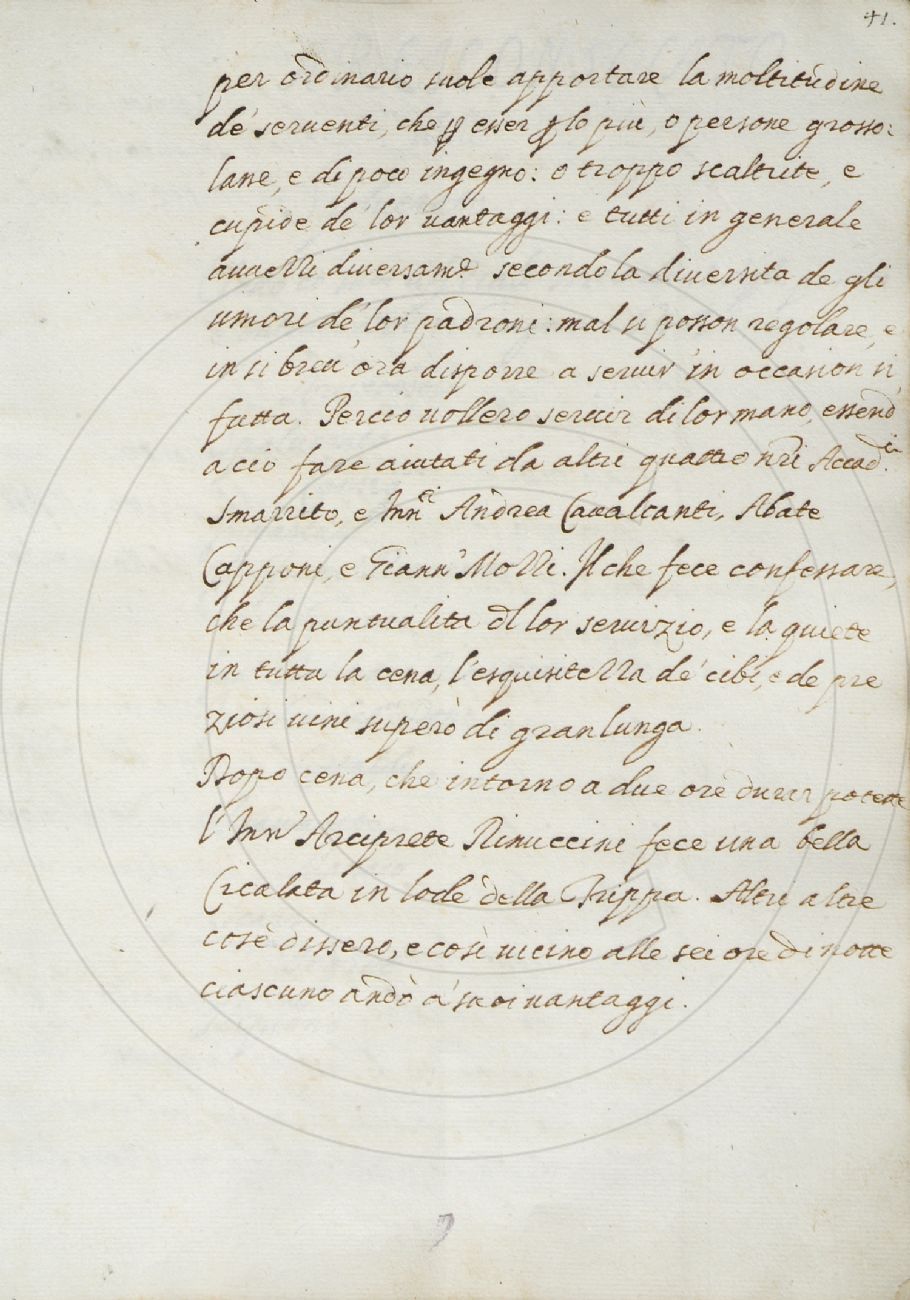 41.
per ordinario suole apportare la moltitudine
de' seruenti, che ꝑ esser ꝑ lo più, o persone grosso:
lane, e di poco ingegno: o troppo scaltrite, e
cupide de' lor uantaggi: e tutti in generale
auuezzi diuersamte secondo la diuersita de gli
umori de' lor padroni: mal si posson regolare, e
in si breu' ora disporre a seruir' in occasion si
fatta. Percio uollero seruir di lor mano, essendo
a cio fare aiutati da altri quattro nri Accadci.
Smarrito, e Innci Andrea Caualcanti, Abate
Capponi, e Giann' Mozzi. Il che fece confessare,
che la puntualita dl lor seruizio, e la quiete
in tutta la cena, l'esquisitezza de' cibi, e de pre
ziosi uini superò di gran lunga.
Dopo cena, che intorno a due ore durar potette
l'Inno Arciprete Rinuccini fece una bella
Cicalata in lode della Trippa. Altri altre
cose dissero, e così uicino alle sei ore di notte
ciascuno andò a' suoi uantaggi.